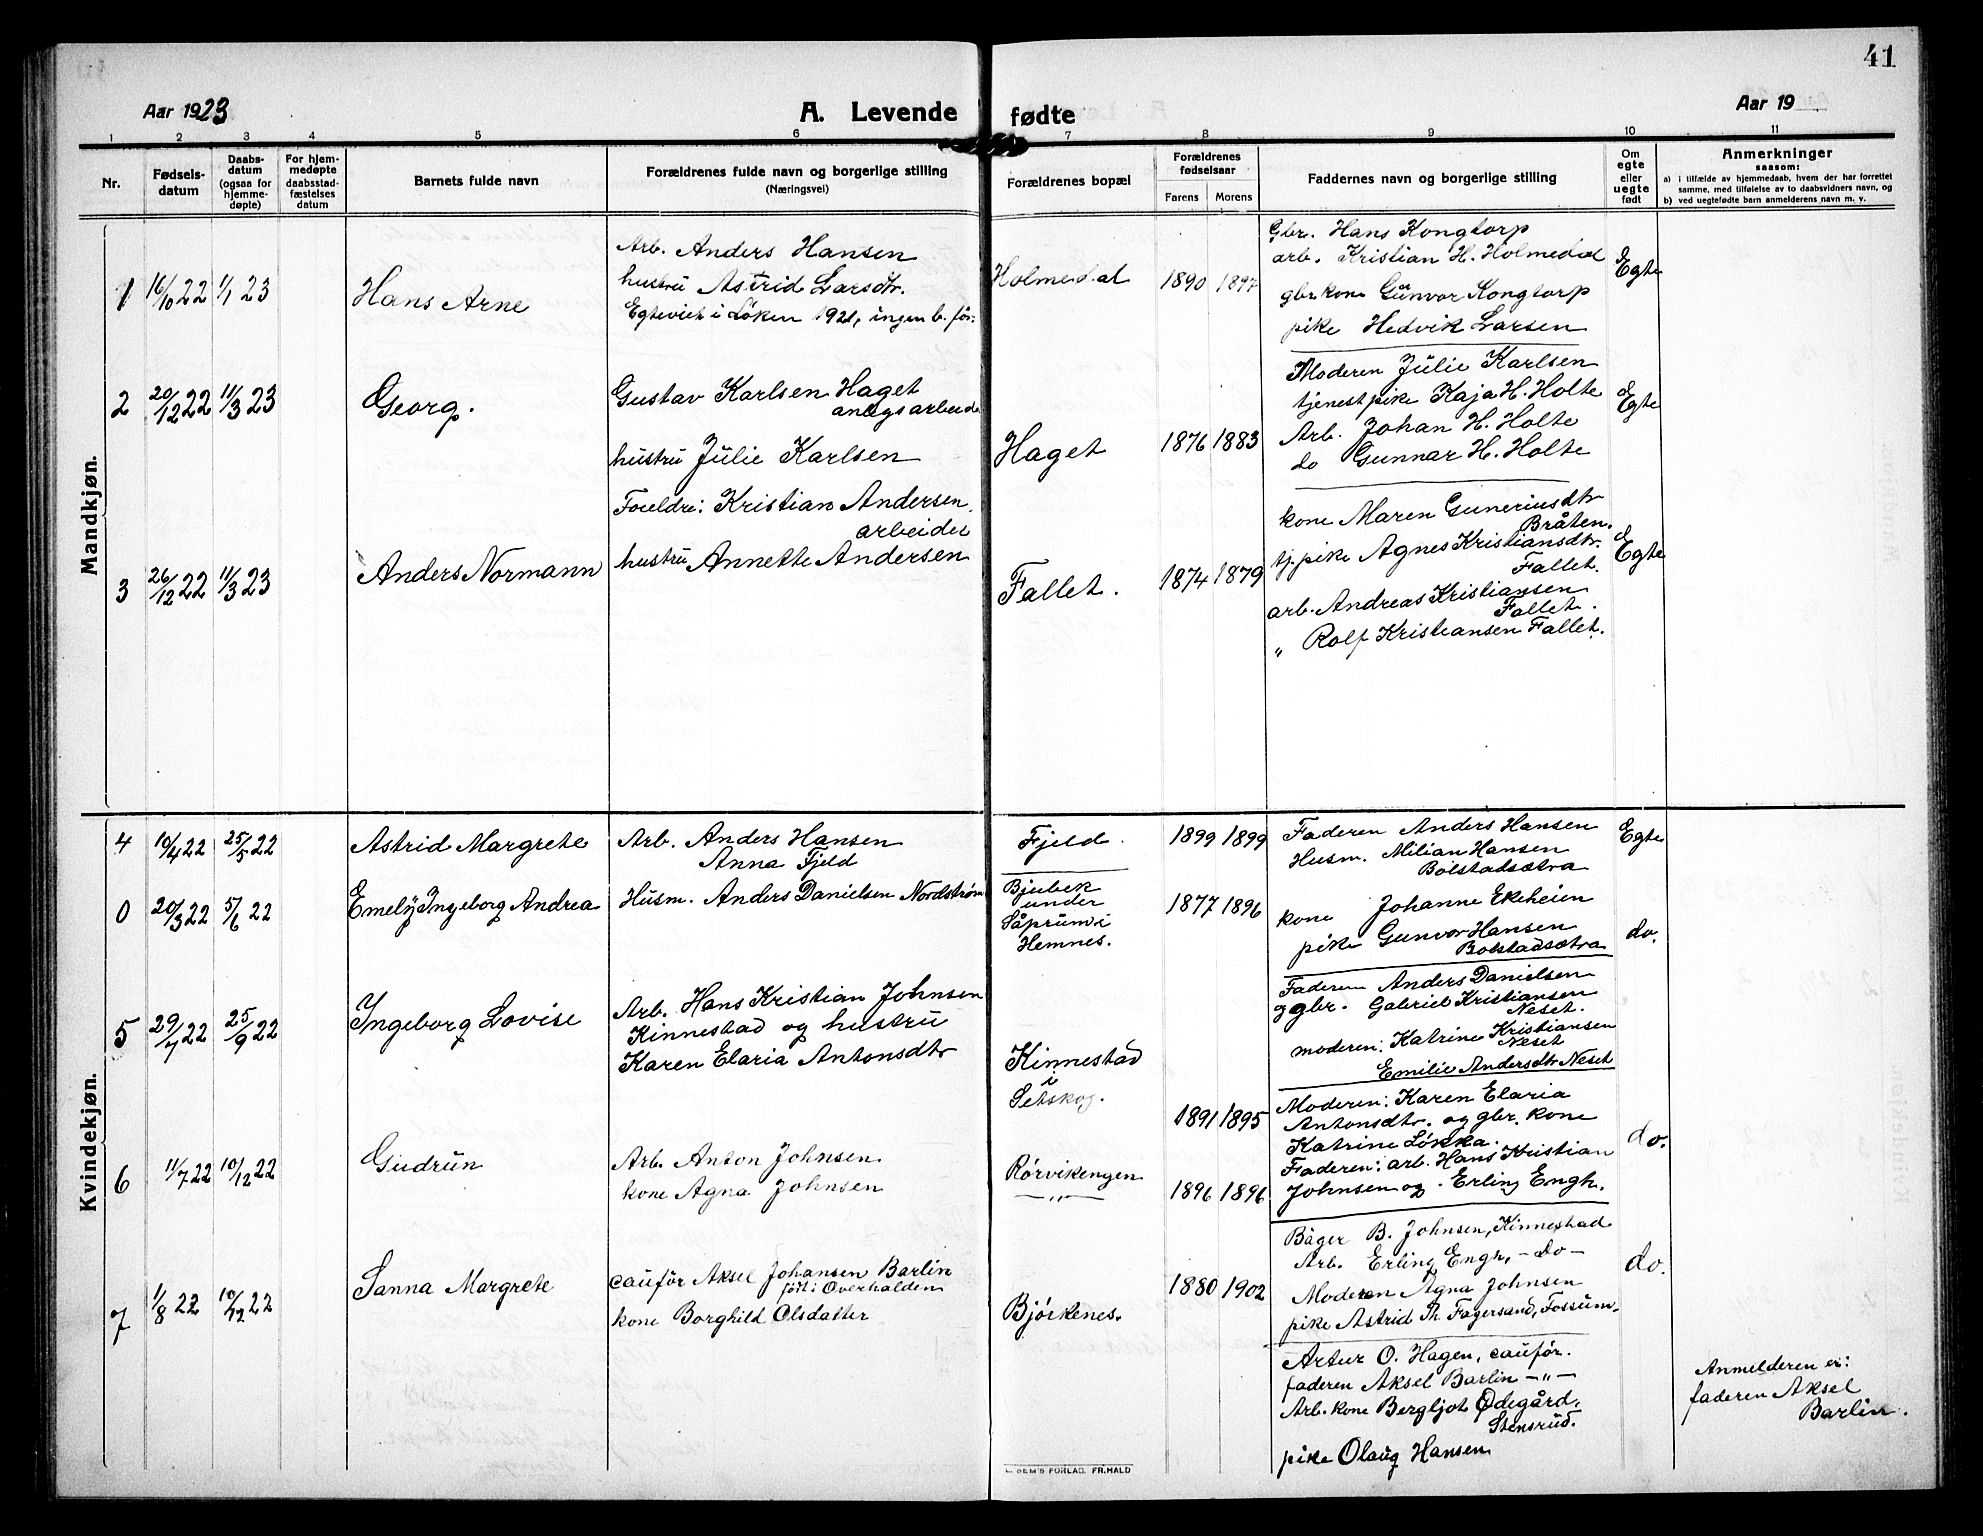 41
Aar 1923
A. Levende fødte
Aar 19
1 2 3 4 5 6 7 8 9 10 11
Nr.
Fødsels-
datum
Daabs-
datum
(ogsaa for
hjemme-
døpte)
For hjem-
medøpte
daabsstad-
fæstelses
datum
Barnets fulde navn
Forældrenes fulde navn og borgerlige stilling
(Næringsvei)
Forældrenes bopæl
Forældrenes
fødselsaar
Farens Morens
Faddernes navn og borgerlige stilling
Om
egte
eller
uegte
født
Anmerkninger
saasom:
a) i tilfælde av hjemmedaab, hvem der har forrettet
samme, med tilføielse av to daabsvidners navn, og
b) ved uegtefødte barn anmelderens navn m. v.
Mandkjøn.
1 16/10 22 1/1 23
Hans Arne
Arb. Anders Hansen
hustru Astrid Larsdtr.
Egteviet i Löken 1921, ingen b. før.
Holmedal
1890 1897
Gbr. Hans Kongtorp
arb. Kristian H. Holmedal
gbr kone Gunvor Kongtorp
pike Hedvik Larsen
Egte
2 20/12 22 11/3 23
Georg.
Gustav Karlsen Haget
anlegsarbeide
hustru Julie Karlsen
Haget
1876 1883
Moderen Julie Karlsen
tjenestpike Kaja H. Holte
Arb. Johan H. Holte
do Gunnar H. Holte
Egte
3 26/12 22 11/3 23
Anders Normann
Foreldre: Kristian Andersen,
arbeider
hustru Annette Andersen
Fallet.
1874 1879
kone Maren Guneriusdtr
Bråten.
tj. pike Agnes Kristiansdtr.
Fallet.
arb. Andreas Kristiansen
Fallet.
„ Rolf Kristiansen Fallet.
Egte
Kvindekjøn.
4 10/4 22 25/5 22
Astrid Margrete
Arb. Anders Hansen
Anna Fjeld
Fjeld.
1899 1899
Faderen Anders Hansen
Husm. Milian Hansen
Bolstadsætra
kone Johanne Ekeheien
pike Gunvor Hansen
Bolstadsætra
Egte
0 20/3 22 5/6 22
Emely Ingeborg Andrea
Husm. Anders Danielsen Nordstrøm
Bjubek
under
Såprum i
Hemnes.
1877 1896
Faderen Anders Danielsen
og gbr. Gabriel Kristiansen
Neset.
moderen: Katrine Kristiansen
Neset
Emilie Andersdtr Neset
do.
5 29/7 22 25/9 22
Ingeborg Lovise
Arb. Hans Kristian Johnsen
Kinnestad og hustru
Karen Elaria Antonsdtr
Kinnestad
i
Setskog.
1891 1895
Moderen: Karen Elaria
Antonsdtr. og gbr. kone
Katrine Løkka.
Faderen: arb. Hans Kristian
Johnsen og Erling Engh.
do.
6 11/7 22 10/12 22
Gudrun
Arb. Anton Johnsen.
kone Agna Johnsen
Rørvikengen
— „ —
1896 1896
B. Johnsen, Kinnestad
Arb. Erling Engh, - do -
Moderen Agna Johnsen
pike Astrid Th. Fagersand, Fossum.
do.
7 1/8 22 10/12 22
Sanna Margrete
caufør Aksel Johansen Barlin
født i Overhalden
kone Borghild Olsdatter
Bjørkenes.
1880 1902
Artur O. Hagen, caufør.
faderen Aksel Barlin - „ -
Arb. kone Bergljot Ødegård,
Stensrud.
pike Olaug Hansen
Anmelderen er:
faderen Aksel
Barlin.
SEM'S FORLAG. FR.HALD